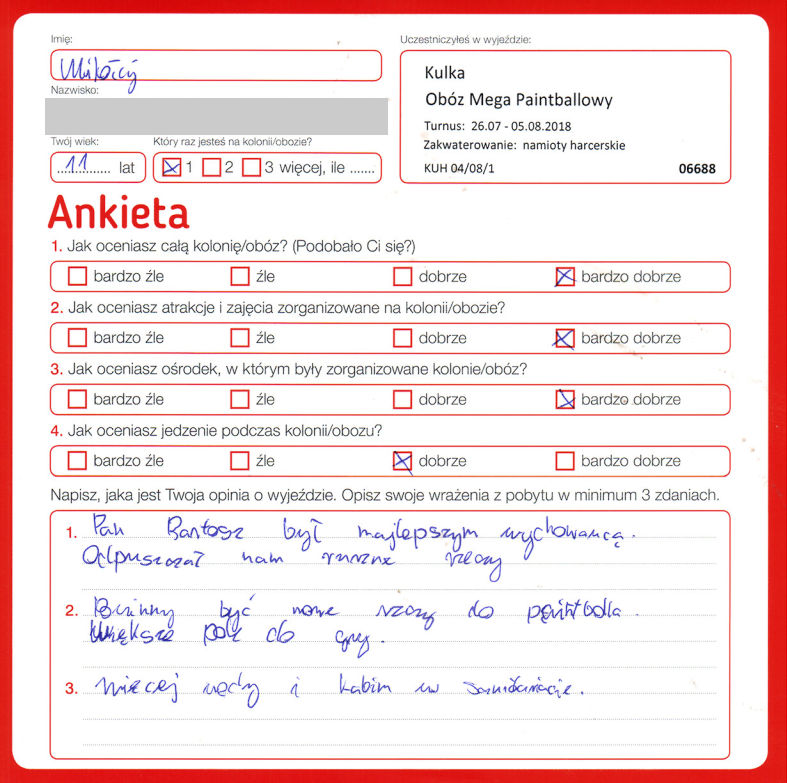 Imię:
Uczestniczyłeś w wyjeździe:
Mikołaj
Kulka
Nazwisko:
Obóz Mega Paintballowy
Turnus: 26.07 - 05.08.2018
Zakwaterowanie: namioty harcerskie
KUH 04/08/1 06688
Twój wiek: Który raz jesteś na kolonii/obozie?
11 lat 1 2 3 więcej, ile .......
Ankieta
1. Jak oceniasz całą kolonię/obóz? (Podobało Ci się?)
bardzo źle źle dobrze bardzo dobrze
2. Jak oceniasz atrakcje i zajęcia zorganizowane na kolonii/obozie?
bardzo źle źle dobrze bardzo dobrze
3. Jak oceniasz ośrodek, w którym były zorganizowane kolonie/obóz?
bardzo źle źle dobrze bardzo dobrze
4. Jak oceniasz jedzenie podczas kolonii/obozu?
bardzo źle źle dobrze bardzo dobrze
Napisz, jaka jest Twoja opinia o wyjeździe. Opisz swoje wrażenia z pobytu w minimum 3 zdaniach.
1. Pan Bartosz był najlepszym wychowawcą.
Odpuszczał nam rzeczy
2. Powinny być nowe rzeczy do paintbolla.
Większe pole do gry.
3. więcej wody i kabin w